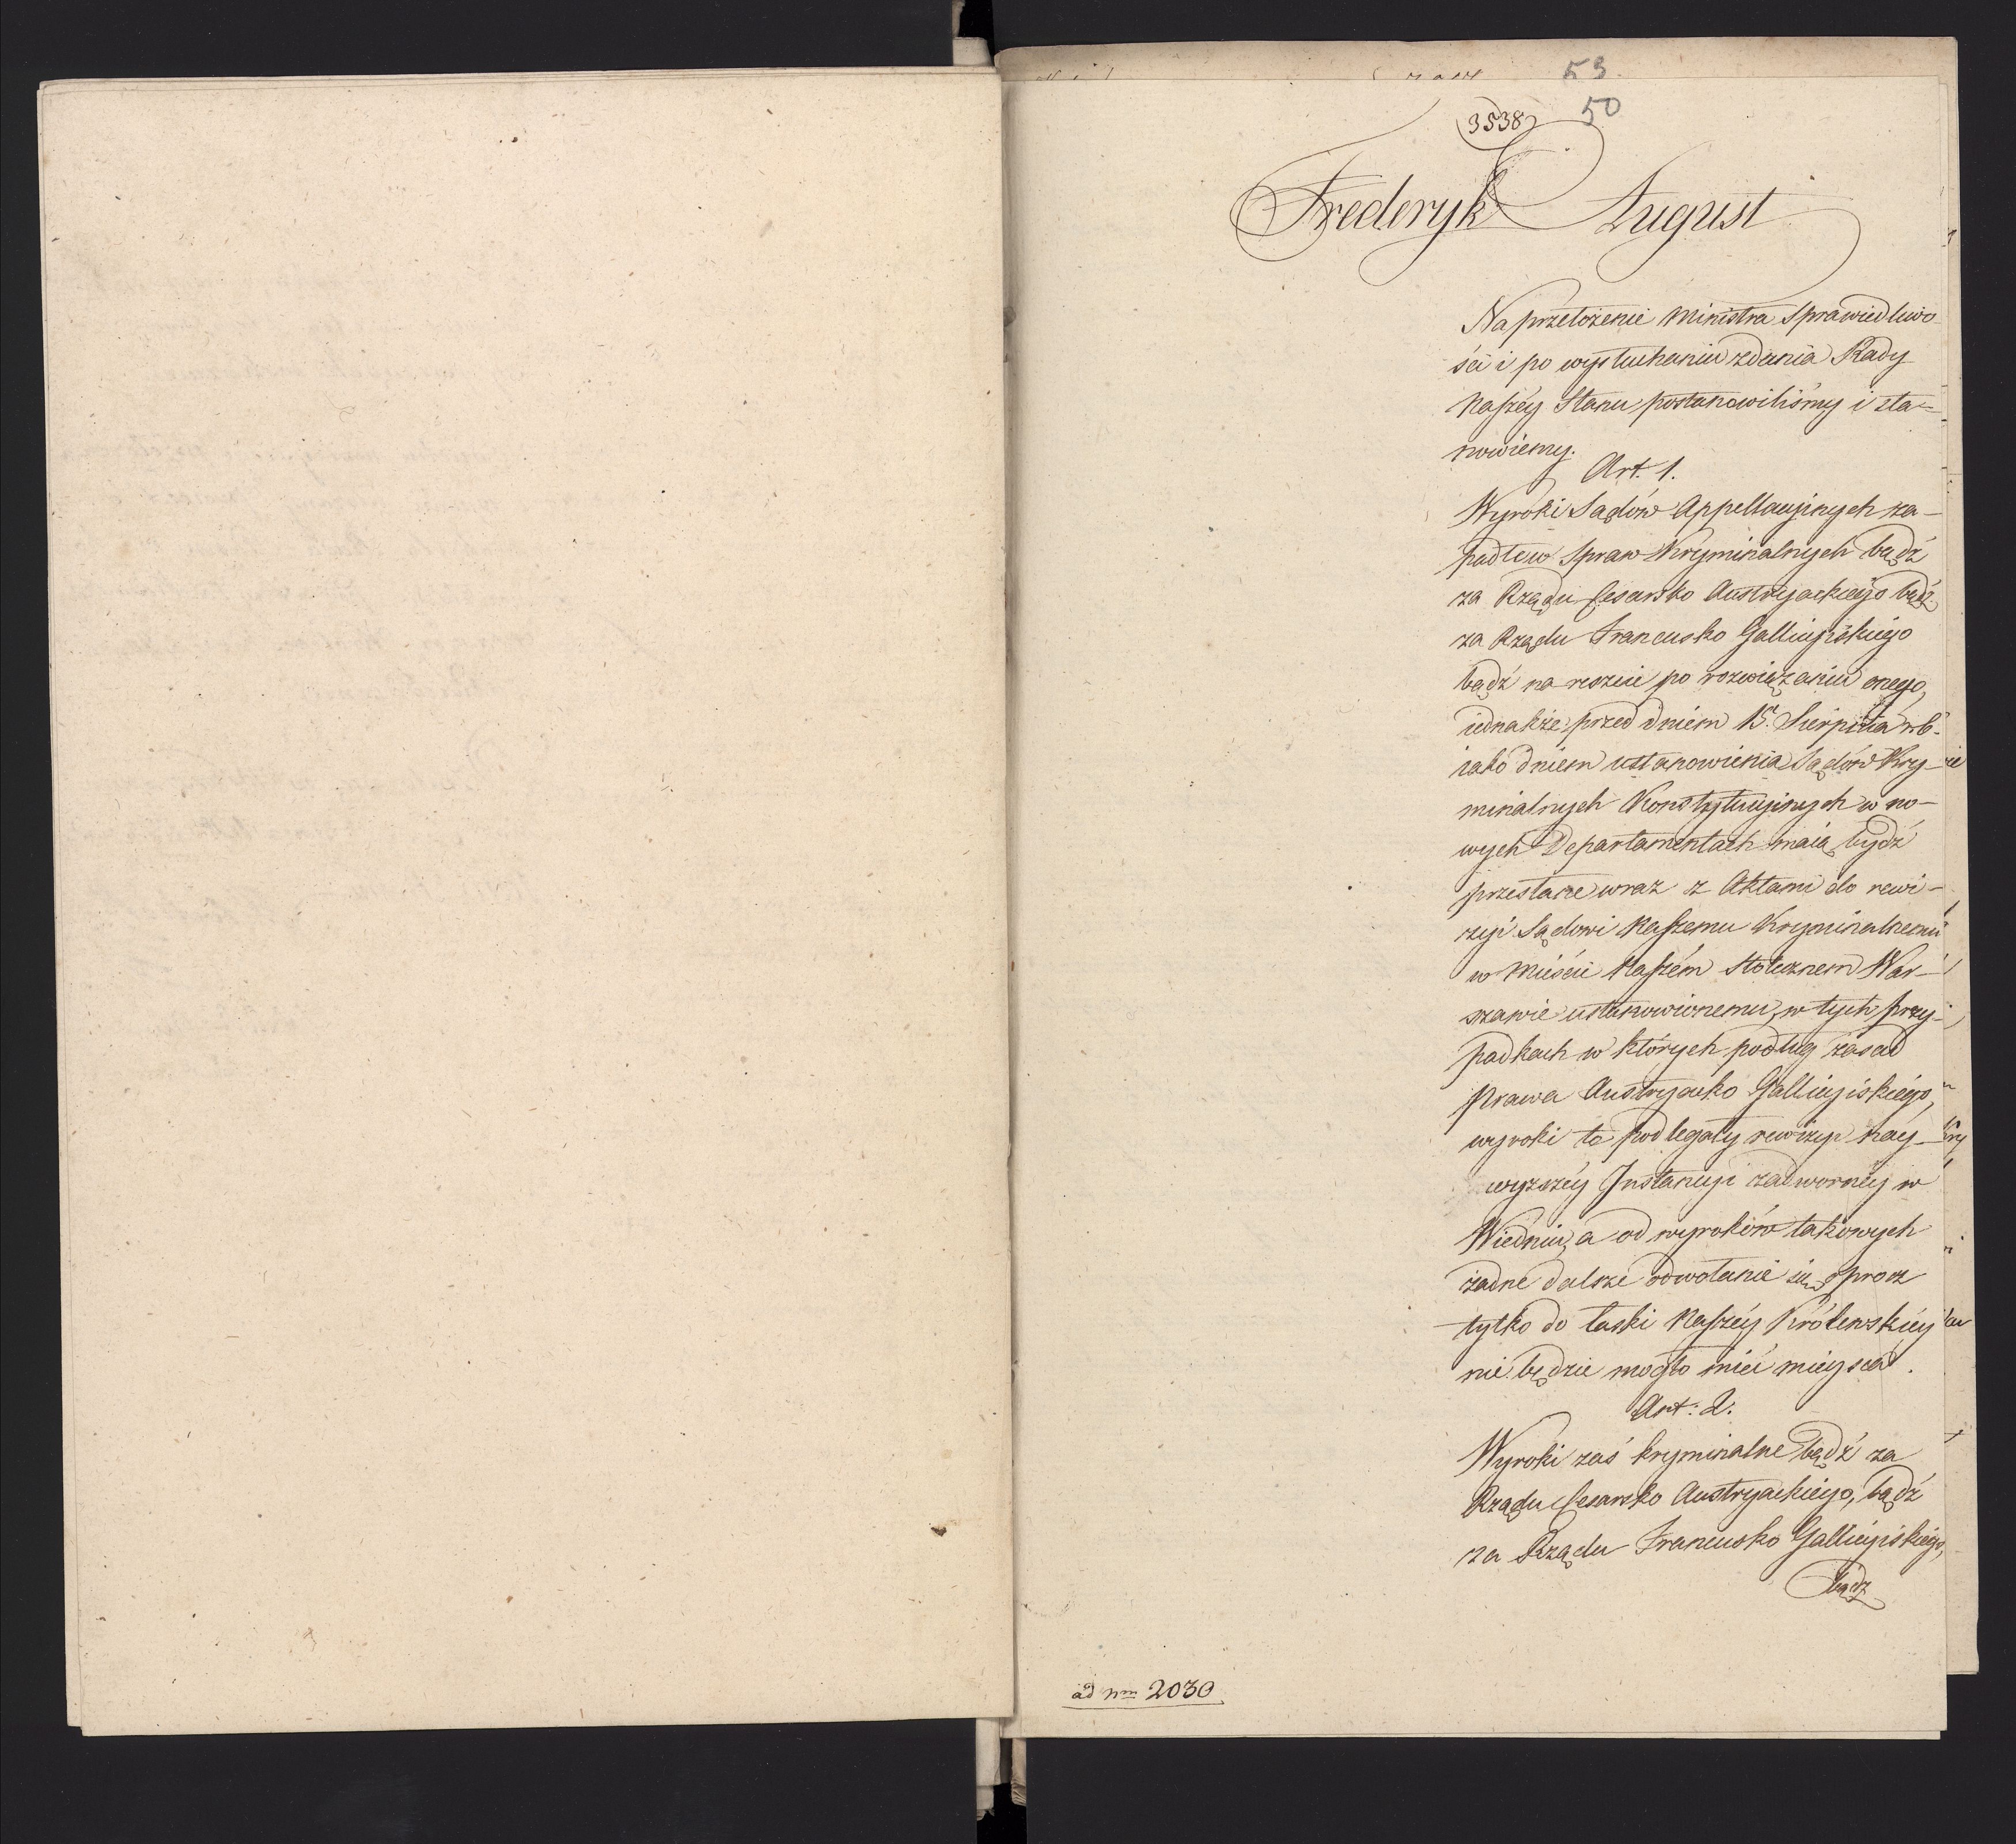 53.
50
3538
Frederyk August
Na przełożenie Ministra Sprawiedliwo
ści i po wysłuchaniu zdania Rady
Naszéy Stanu postanowiliśmy i sta=
nowiemy.
Art. 1.
Wyroki Sądów Appellacyinych za-
padłe w Spraw Kryminalnych bądź
za Rządu Cesarsko Austryackiego bądź
za Rządu Francusko Gallicyiskiego
bądź na reszcie po rozwiązaniu onego,
iednakże przed dniem 15. Sierpnia r. b.
iako dniem ustanowienia Sądów Kry-
minalnych Konstytucyinych w no-
wych Departamentach maią bydź
przesłane wraz z Aktami do rewi-
zyi Sądowi Naszemu Kryminalnemu
w Mieście Naszém Stołecznem War-
szawie ustanowionemu, w tych przy-
padkach w których podług zasad
prawa Austryacko Gallicyiskiego,
wyroki te podlegały rewizyi nay-
wyższéy Instancyi nadwornéy w
Wiedniu, a od wyroków takowych
żadne dalsze odwołanie się oprocz
tylko do łaski Naszéy Królewskiéy
nie będzie mogło mieć mieysca.
Art: 2.
Wyroki zaś kryminalne bądź za
Rządu Cesarsko Austryackiego, bądź
za Rządu Francusko Gallicyiskiego,
bądz
ad nrm 2030